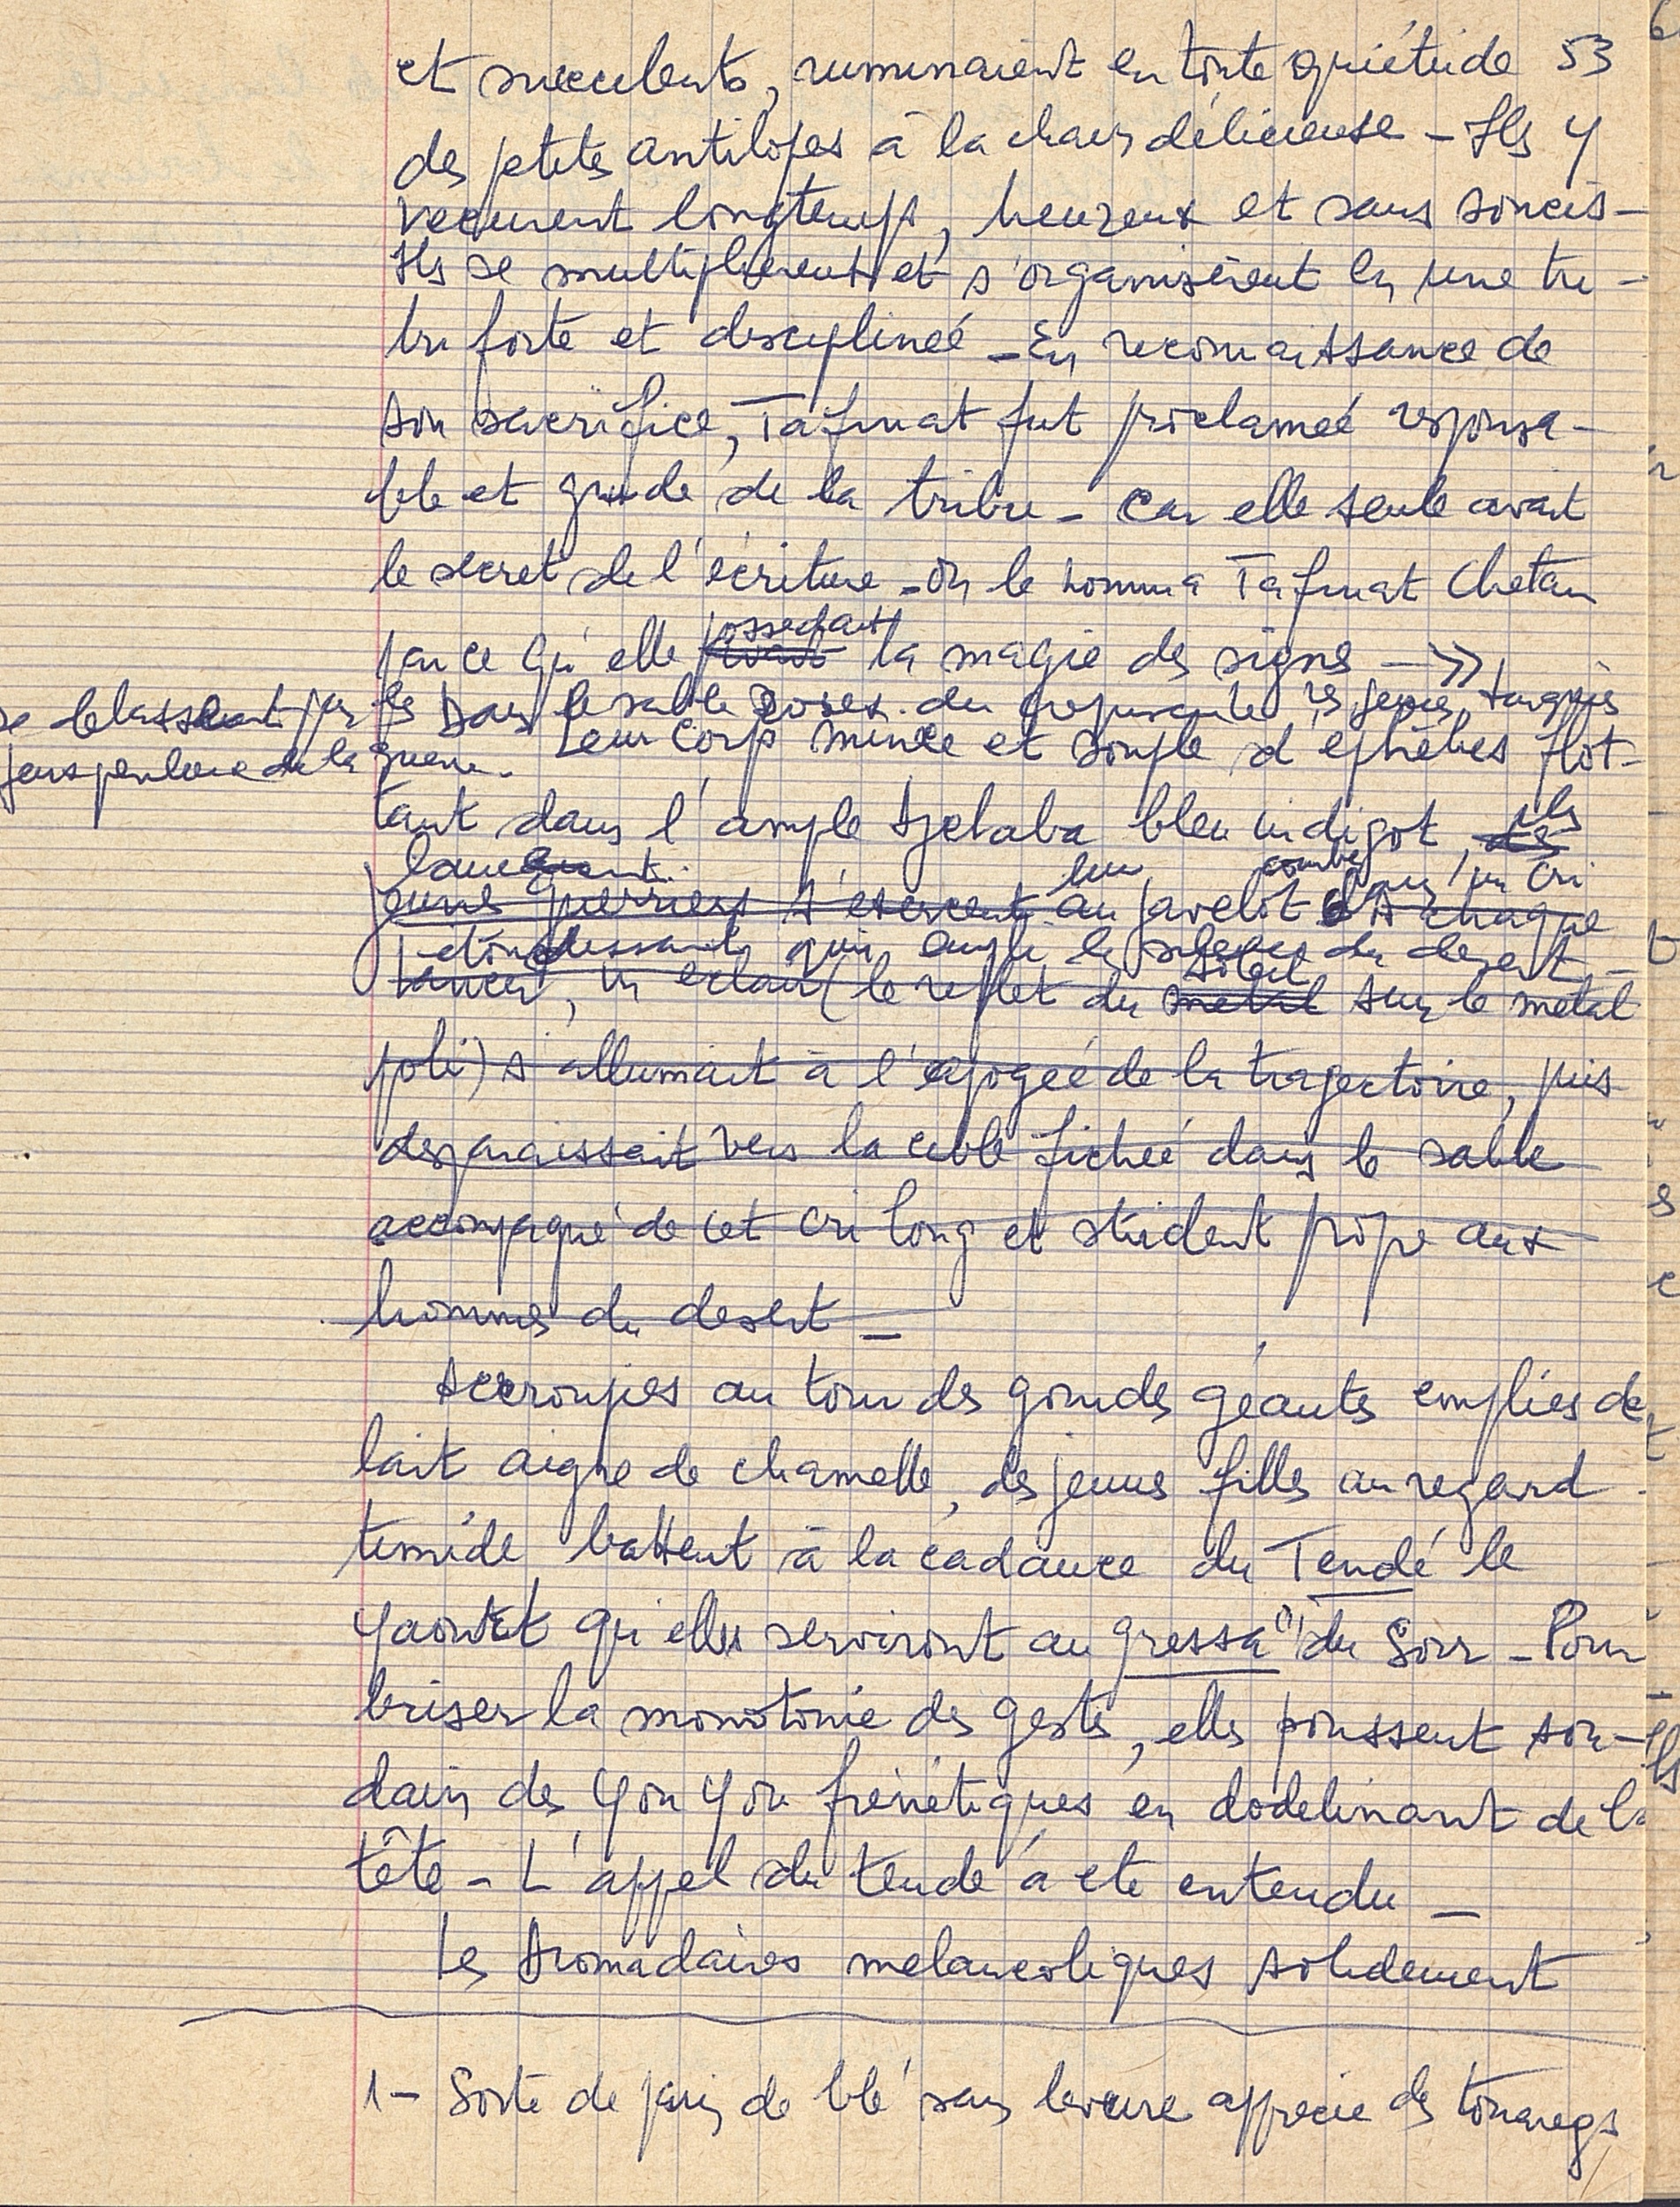 et succulents, ruminaient en toute quiétude 53
des petites antilopes à la chair délicieuse - Ils y
vecurent longtemps, heureux et sans soucis -
Ils se multiplièrent et s'organisèrent en une tri-
bu forte et disciplineé - En reconnaissance de
son sacrifice, Tafinat fut proclameé responsa-
ble et guide de la tribu - Car elle seule avait
le secret de l'écriture - On le nomma Tafinat Chetan
possedait
parce qu'elle avait la magie des signes - »
se delassent par les Dans le sable roses du crepuscule les jeunes targuis
jeux de la guerre. Leur corp mince et souple d'ephèbes flot-
tant dans l'ample djelaba bleu indigot, ils
lancent leur courbe dans un cri
jeunes guerriers s'exercent au javelot A chaque
etourdissant qui empli le silence du desert -
lancer, un eclair (le reflet du soleil metal sur le metal
poli) s'allumait à l'apogeé de la trajectoire, puis
desparaissait vers la cible fichée dans le sable
accompagné de cet cri long et strident propre aux
hommes du desert -
Accroupies au tour des gourdes géantes emplies de
lait aigre de chamelle, des jeunes filles au regard
timide battent à la cadance du Tendé le
yaourt qu'elles serviront au gressa (1) du Soir - Pour
briser la monotonie des gestes, elles poussent sou-
dain des you you frénétiques en dodelinant de la
tête - L'appel du tendé a ete entendu -
Les dromadaires melancoliques solidement
1 - Sorte de pain de blé sans levure apprecie des touaregs